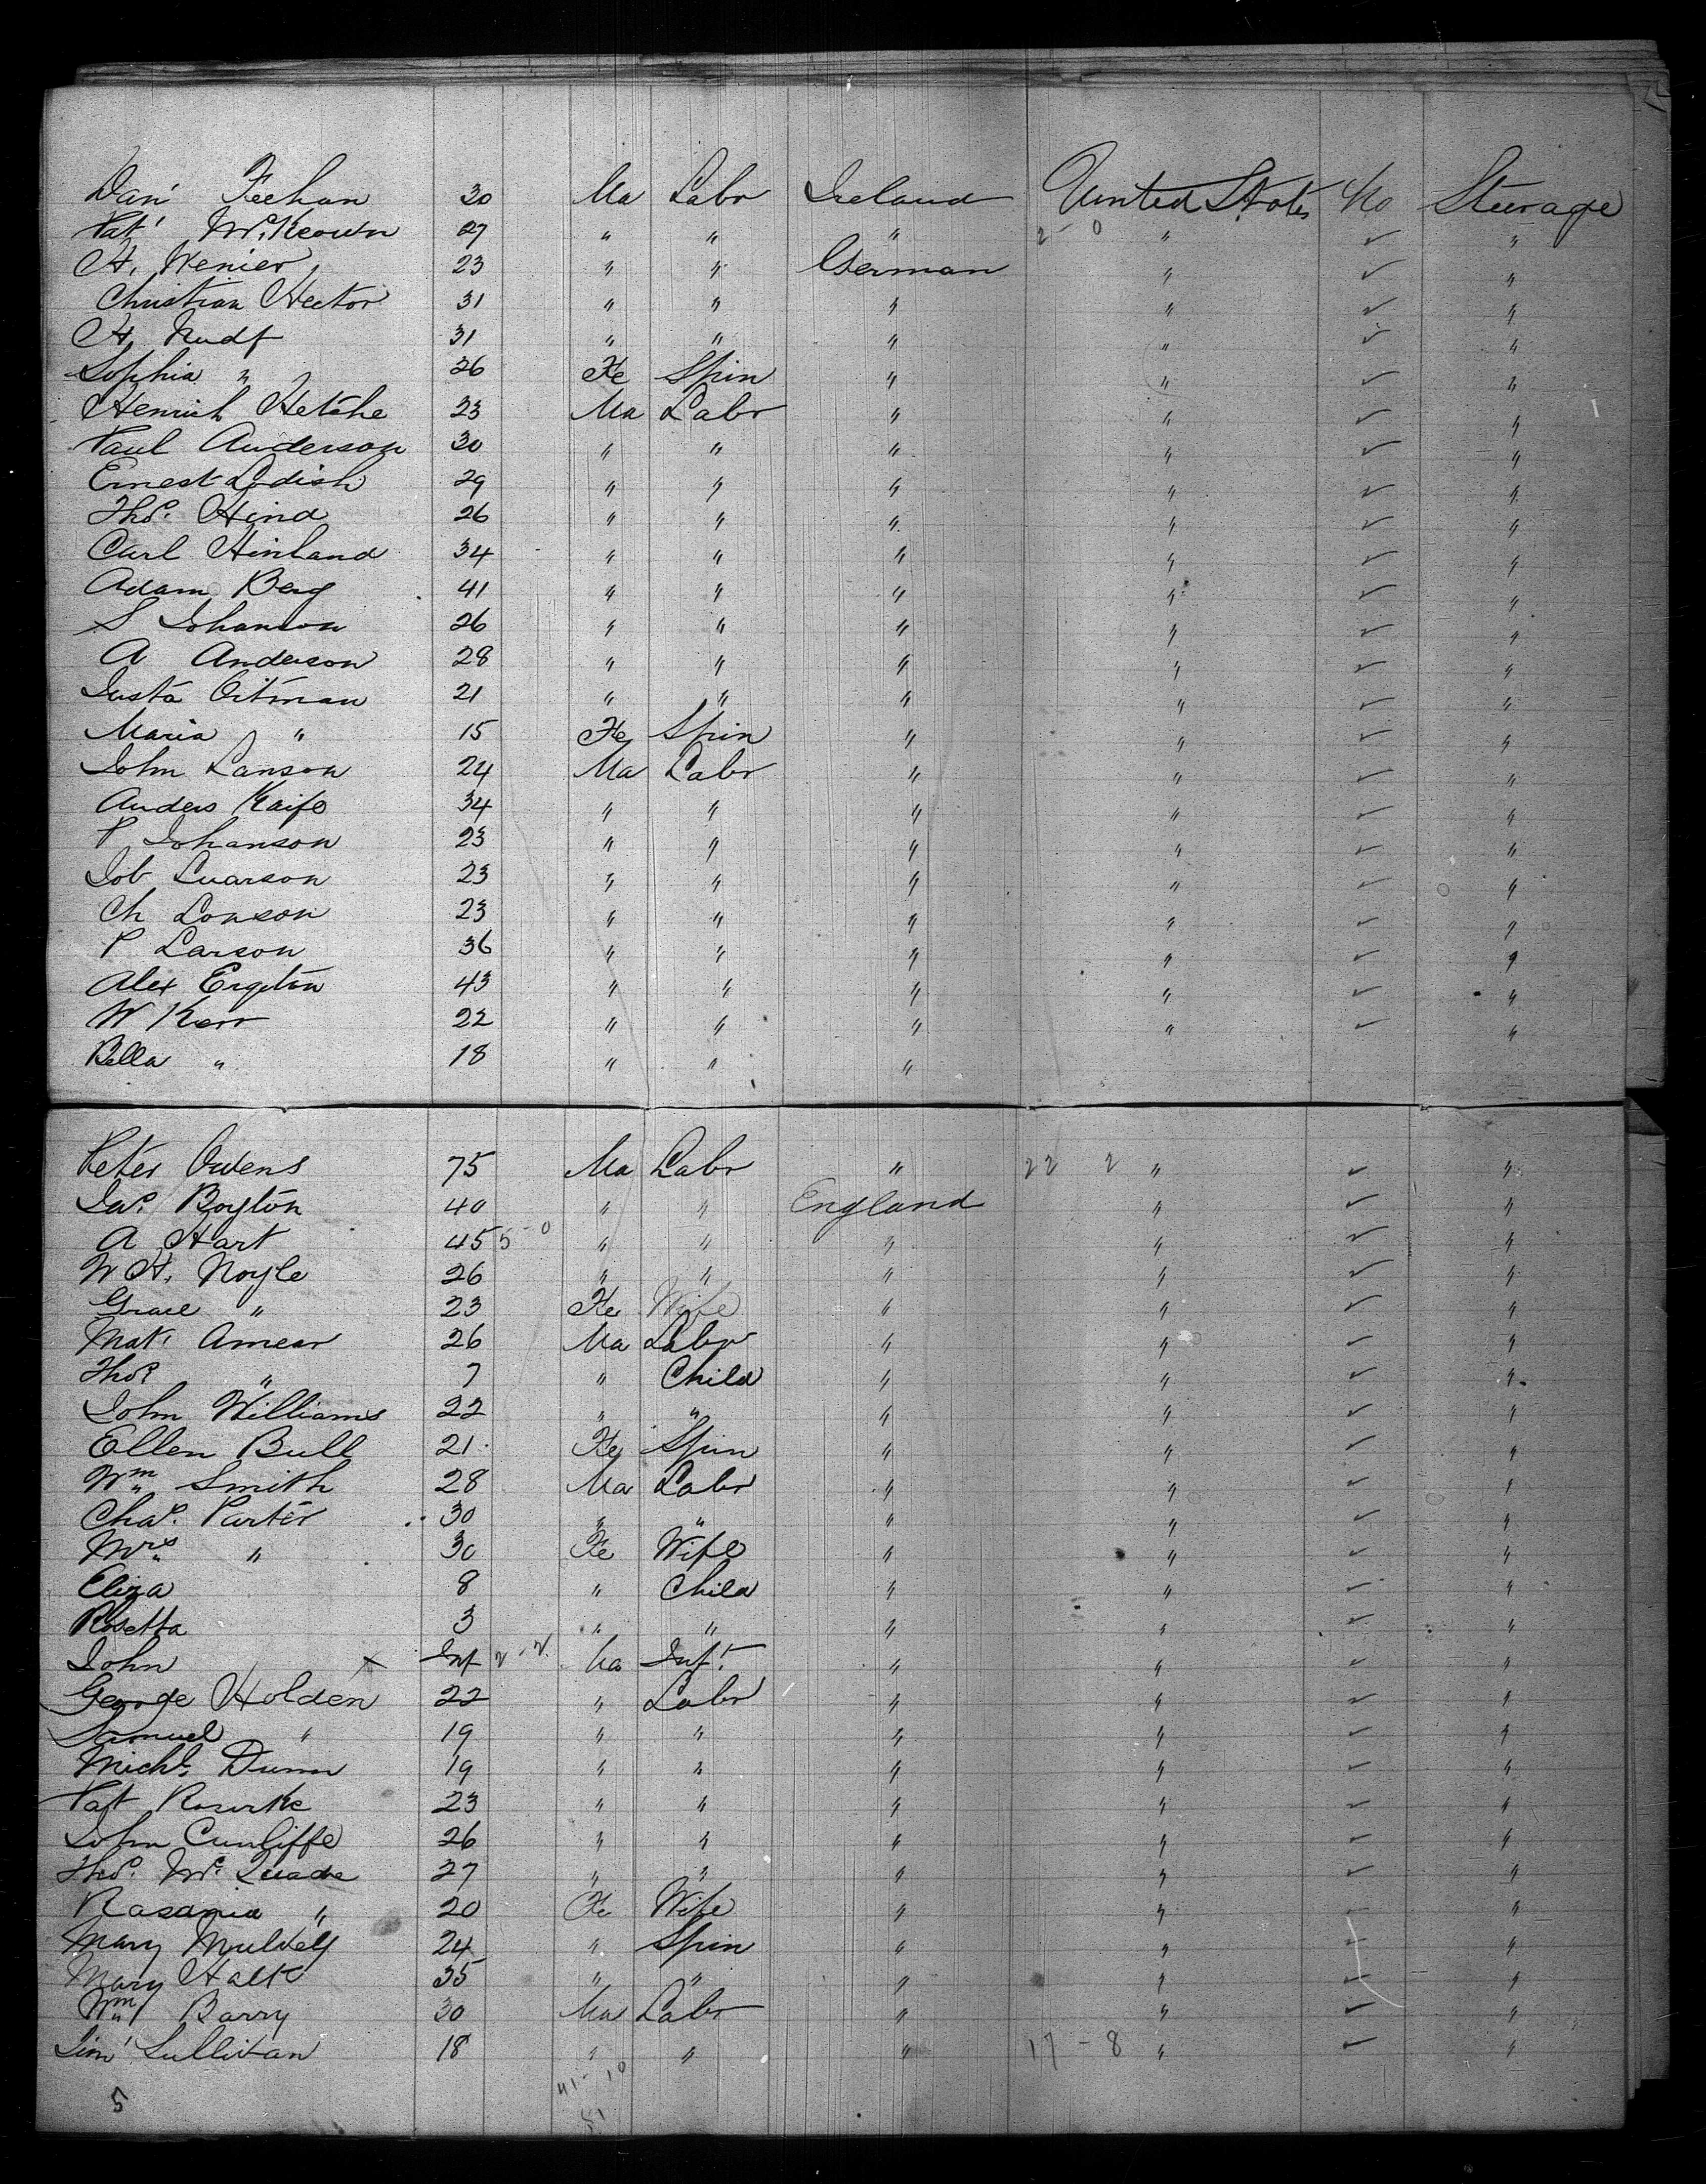 Dan' Feehan 30 Ma Labr Ireland United States No Steerage
Pat' McKeown 27 " " " 2-0 " ✓ "
H. Wenier 23 " " German " ✓ "
Christian Hector 31 " " " " ✓ "
H. Nudf 31 " " " " ✓ "
Sophia " 26 Fe Spin " " ✓ "
Henrich Hetche 23 Ma Labr " " ✓ "
Paul Anderson 30 " " " " ✓ "
Ernest Lodish 29 " " " " ✓ "
Thos. Hind 26 " " " " ✓ "
Carl Hinland 34 " " " " ✓ "
Adam Berg 41 " " " " ✓ "
S Johanson 26 " " " " ✓ "
A Anderson 28 " " " " ✓ "
Justa Oitman 21 " " " " ✓ "
Maria " 15 Fe Spin " " ✓ "
John Lanson 24 Ma Labr " " ✓ "
Anders Kaife 34 " " " " ✓ "
P Johanson 23 " " " " ✓ "
Job Luarson 23 " " " " ✓ "
Ch Lonson 23 " " " " ✓ "
P Larson 36 " " " " ✓ "
Alex Ergeton 43 " " " " ✓ "
W Kerr 22 " " " " ✓ "
Bella " 18 " " "
Peter Owens 75 Ma Labr " 22 2 " ✓ "
Jas. Boylton 40 " " England " ✓ "
A Hart 45 5-0 " " " " ✓ "
W H. Noyle 26 " " " " ✓ "
Grace " 23 Fe Wife " " ✓ "
Mat' Amear 26 Ma Labr " " ✓ "
Thos " 7 " Child " " ✓ "
John Williams 22 " " " " ✓ "
Ellen Bull 21 Fe Spin " " ✓ "
Wm Smith 28 Ma Labr " " ✓ "
Chas. Parter 30 " " " " ✓ "
Mrs " 30 Fe Wife " " ✓ "
Eliza 8 " Child " " ✓ "
Rosetta 3 " " " " ✓ "
John x Inf 2-2 Ma Inft. " " ✓ "
George Holden 22 " Labr " " ✓ "
Samuel " 19 " " " " ✓ "
Michl. Dunn 19 " " " " ✓ "
Pat Rourke 23 " " " " ✓ "
John Cunliffe 26 " " " " ✓ "
Thos. McQuade 27 " " " " ✓ "
Rasania " 20 Fe Wife " " ✓ "
Mary 24 " Spin " " ✓ "
Mary Halk 35 " " " " ✓ "
Wm Barry 30 Ma Labr " " ✓ "
Jim' Sullivan 18 " " " 17-8 " ✓ "
5 41-10
51